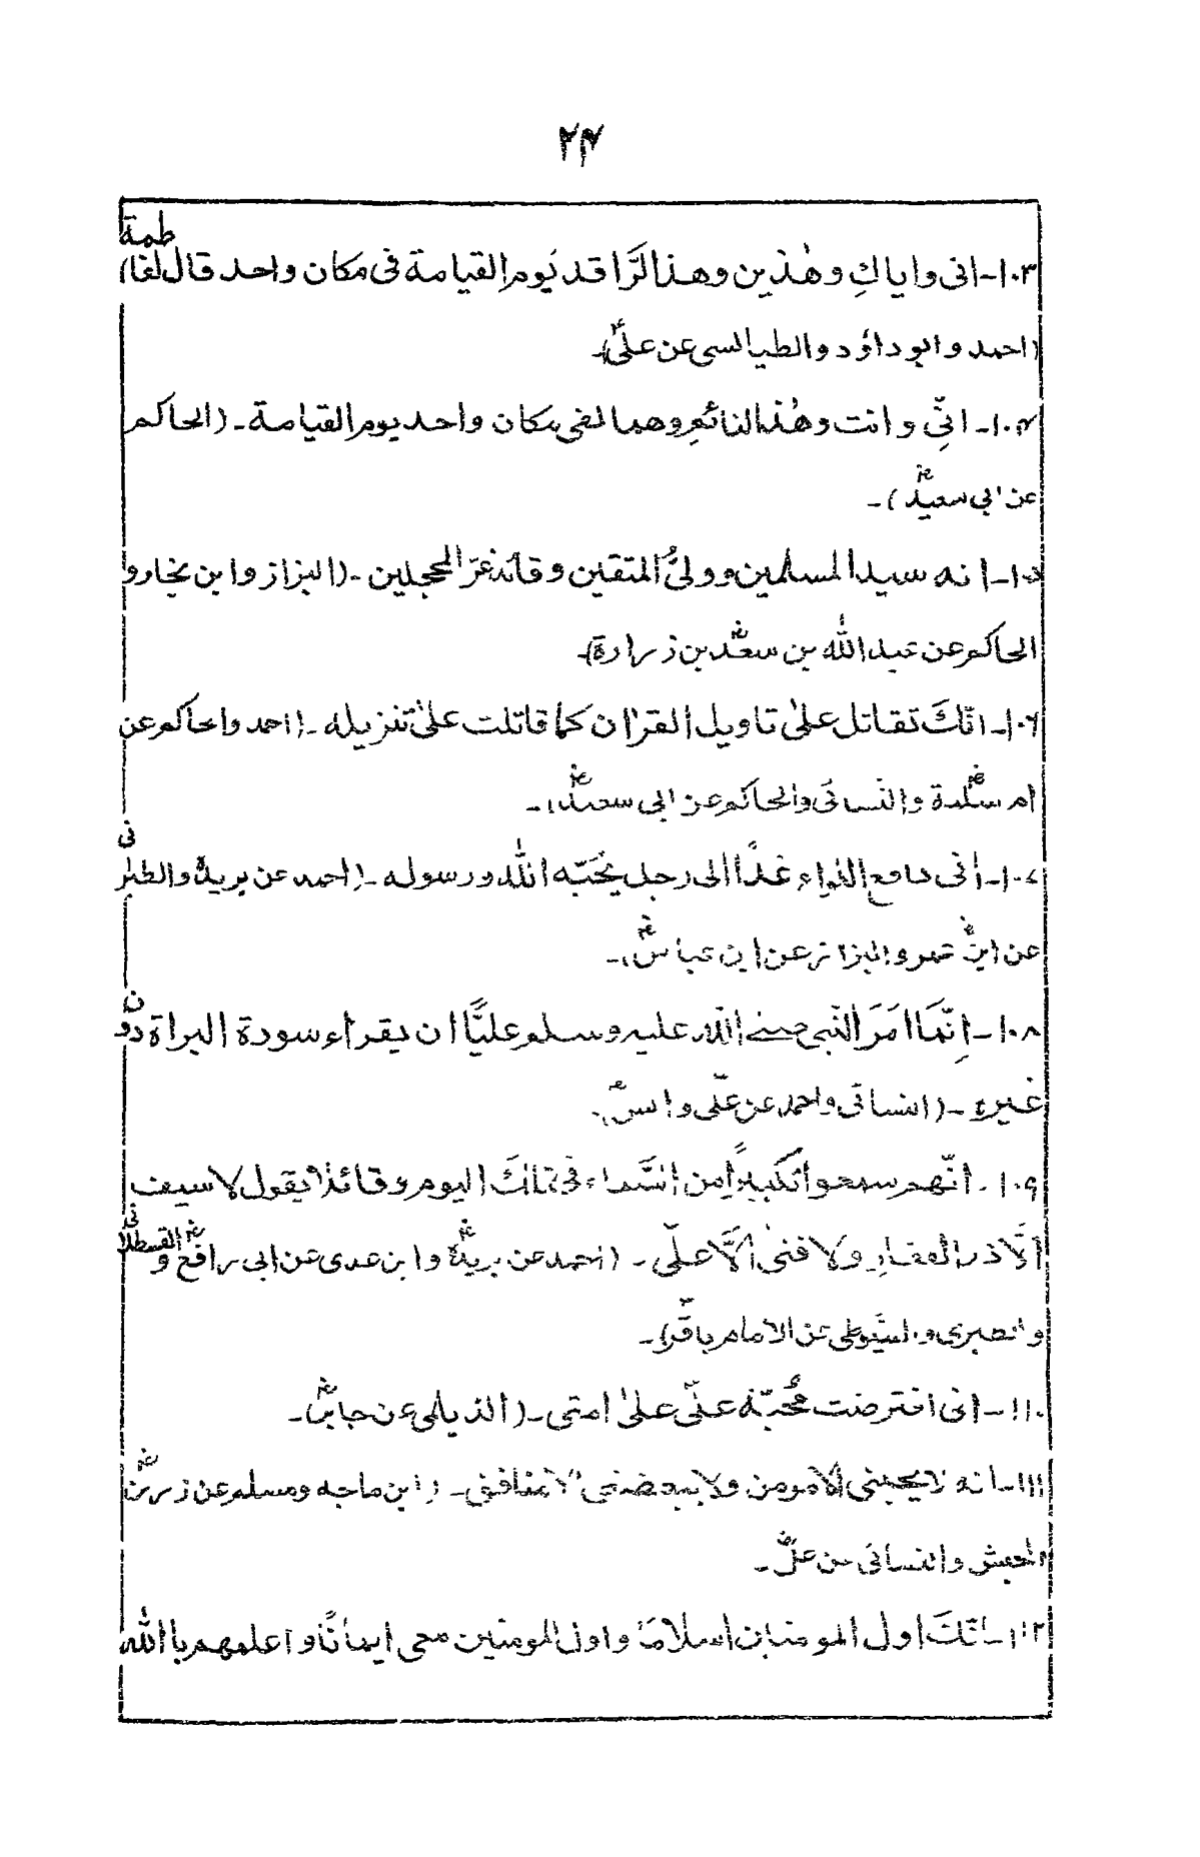 ۲۴
۱۰۳ـ انى واياكِ وهٰذين وهذا لرَّاقد يَوم القيامة فى مكان واحد قال لفاطمة)
(احمد وابو داؤد والطيالسى عن علىؓ)ـ
۱۰۴ـ انّىِ وانت وهٰذا النائم وهما لفى مكان واحد يوم القيامة ـ (الحاكم
عن ابى سعيدؓ) ـ
۱۰۵ـ انه سيد المسلمين وولىُّ المتقين وقائد غرّ المحجلين ـ (البزاز وابن نجار و
الحاكم عن عبد اللٰه بن سعدؓ بن زرارة)ـ
۱۰۶ـ انّكَ تقاتل علىٰ تاويل القرٰان كما قاتلت علىٰ تنزيله ـ (احمد والحاكم عن
ام سلمةؓ والنسائى والحاكم عن ابى سعيدؓ) ـ
۱۰۷ـ انى دافع اللواء غداً الى رجل يُحَبّه اللٰه ورسوله ـ (احمد عن بريدةؓ والطبرانى
عن ابنؓ عمر والبزاز عن ابن عباسؓ) ـ
۱۰۸ـ اِنَّمَا اَمَرَ النّبى صلے اللٰه عليه وسلم عليًّا ان يقراء سورة البراة دون
غيره ـ (النسائى واحمد عن علىؓ وانسؓ)
۱۰۹ـ انّهم سمعوا تكبيراً من السَّماء فى ذالكَ اليوم وقائلا يقول لا سيف
الَّا ذو الفقار ولا فتىٰ الَّا علىّ ـ (احمد عن بريدةؓ وابن عدى عن ابى رافعؓ والقسطلانى
والطبرى والسيوطى عن الامام باقرؓ) ـ
۱۱۰ـ انى افترضت محُبّة علىّ علىٰ امتى ـ (الديلمى عن جابرؓ) ـ
۱۱۱ـ انه لا يحبنى الا مومن ولا يبغضنى الا منافق ـ (ابن ماجه ومسلم عن زرؓ بن
الحبش والنسائى عن علىؓ ـ
۱۱۲ـ انّكَ اول المومنين اسلامًا واول المومنين معى ايمانًا واعلمهم باللٰه